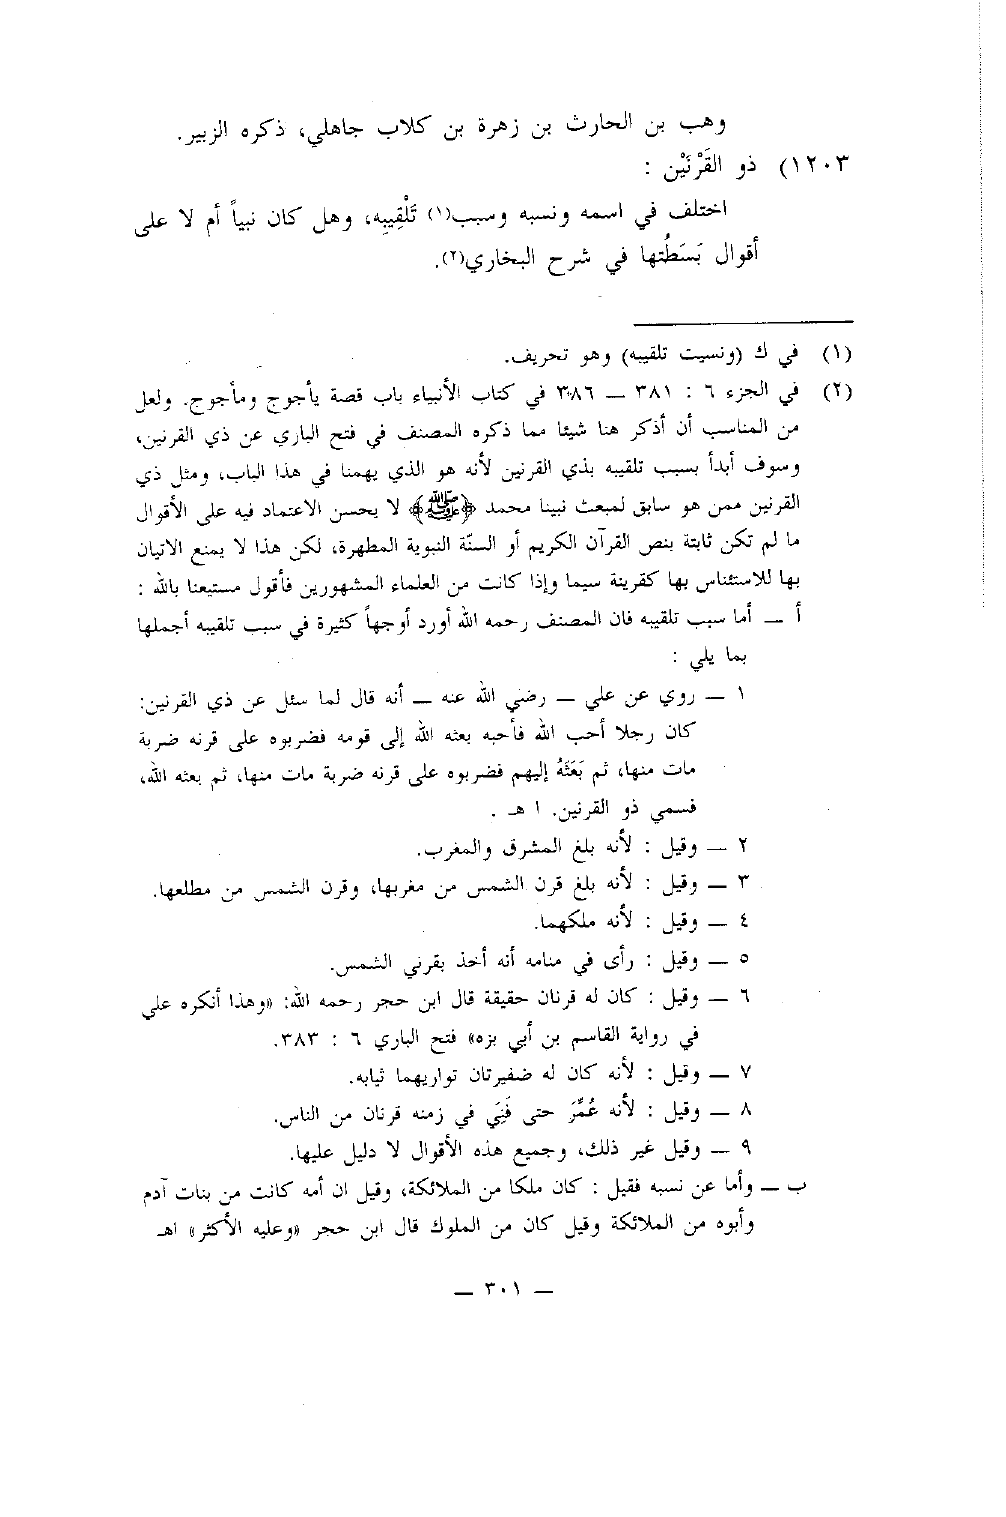 وهب بن الحارث بن زهرة بن كلاب جاهلي، ذكره الزبير.
١٢٠٣) ذو القَرْنَيْن :
اختلف في اسمه ونسبه وسبب(١) تَلْقِيبِه، وهل كان نبياً أم لا على
أقوال بَسَطْتها في شرح البخاري(٢).
(١) في ك (ونسيت تلقيبه) وهو تحريف.
(٢) في الجزء ٦ : ٣٨١ ــ ٣٨٦ في كتاب الأنبياء باب قصة يأجوج ومأجوج. ولعل
من المناسب أن أذكر هنا شيئا مما ذكره المصنف في فتح الباري عن ذي القرنين،
وسوف أبدأ بسبب تلقيبه بذي القرنين لأنه هو الذي يهمنا في هذا الباب، ومثل ذي
القرنين ممن هو سابق لمبعث نبينا محمد ﴿ﷺ﴾ لا يحسن الاعتماد فيه على الأقوال
ما لم تكن ثابتة بنص القرآن الكريم أو السنّة النبوية المطهرة، لكن هذا لا يمنع الاتيان
بها للاستئناس بها كقرينة سيما وإذا كانت من العلماء المشهورين فأقول مستيعنا بالله :
أ ــ أما سبب تلقيبه فان المصنف رحمه الله أورد أوجهاً كثيرة في سبب تلقيبه أجملها
بما يلي :
١ ــ روي عن علي ــ رضي الله عنه ــ أنه قال لما سئل عن ذي القرنين:
كان رجلا أحب الله فأحبه بعثه الله إلى قومه فضربوه على قرنه ضربة
مات منها، ثم بَعَثَهُ إليهم فضربوه على قرنه ضربة مات منها، ثم بعثه الله،
فسمي ذو القرنين. ا هـ .
٢ ــ وقيل : لأنه بلغ المشرق والمغرب.
٣ ــ وقيل : لأنه بلغ قرن الشمس من مغربها، وقرن الشمس من مطلعها.
٤ ــ وقيل : لأنه ملكهما.
٥ ــ وقيل : رأى في منامه أنه أخذ بقرني الشمس.
٦ ــ وقيل : كان له قرنان حقيقة قال ابن حجر رحمه الله: «وهذا أنكره علي
في رواية القاسم بن أبي بزه» فتح الباري ٦ : ٣٨٣.
٧ ــ وقيل : لأنه كان له ضفيرتان تواريهما ثيابه.
٨ ــ وقيل : لأنه عُمِّرَ حتى فَنِيَ في زمنه قرنان من الناس.
٩ ــ وقيل غير ذلك، وجميع هذه الأقوال لا دليل عليها.
ب ــ وأما عن نسبه فقيل : كان ملكا من الملائكة، وقيل ان أمه كانت من بنات آدم
وأبوه من الملائكة وقيل كان من الملوك قال ابن حجر «وعليه الأكثر» اهـ
ــ ٣٠١ ــ